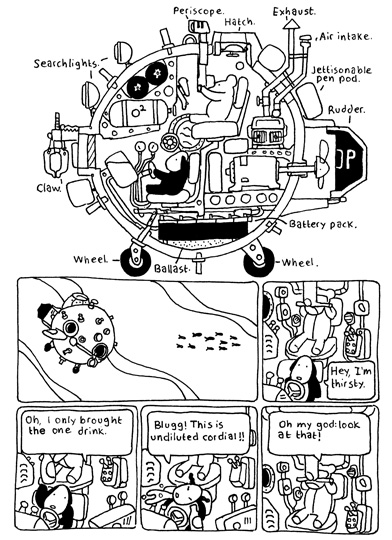 Periscope.
Hatch.
Exhaust.
Air intake.
Searchlights.
Jettisonable
pen pod.
Rudder.
2
JP
Claw.
Battery pack.
Wheel
Ballast.
Wheel.
Hey, I'm
thirsty.
Oh, I only brought
the one drink.
Blugg! This is
undiluted cordial!!
Oh my god: look
at that!